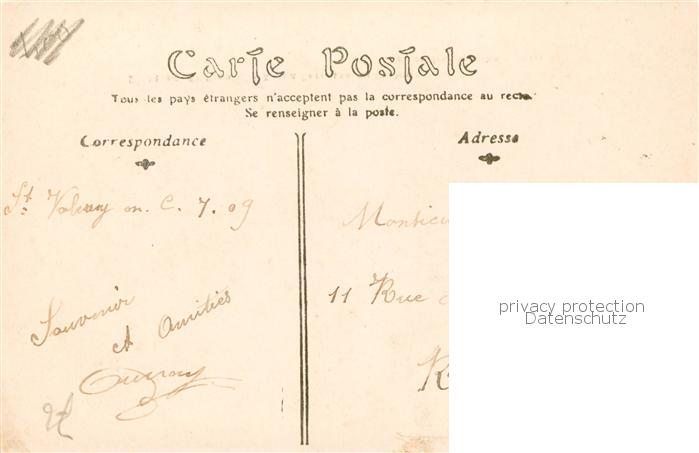 Carte Postale
Tous les pays étrangers n'acceptent pas la correspondance au recto.
Se renseigner à la poste.
Correspondance
Adresse
St Valery en C. 7. 09
Monsieu
11 Rue
Souvenir
et Amitiés
privacy protection
Datenschutz